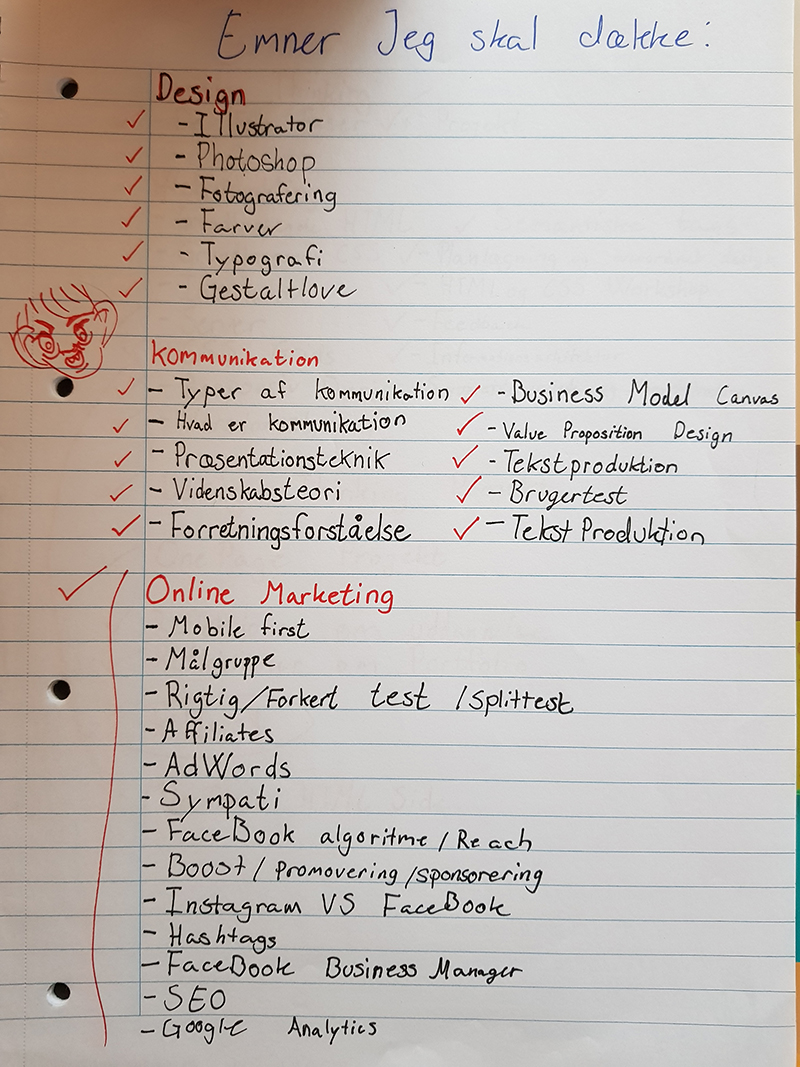 Emner Jeg skal dække:
Design
- Illustrator
- Photoshop
- Fotografering
- Farver
- Typografi
- Gestaltlove
Kommunikation
- Typer af kommunikation
- Hvad er kommunikation
- Præsentationsteknik
- Videnskabsteori
- Forretningsforståelse
- Business Model Canvas
- Value Proposition Design
- Tekstproduktion
- Brugertest
- Tekst Produktion
Online Marketing
- Mobile first
- Målgruppe
- Rigtig/Forkert test /Splittest
- Affiliates
- AdWords
- Sympati
- FaceBook algoritme / Reach
- Boost / Promovering /sponsorering
- Instagram VS FaceBook
- Hashtags
- FaceBook Business Manager
- SEO
- Google Analytics